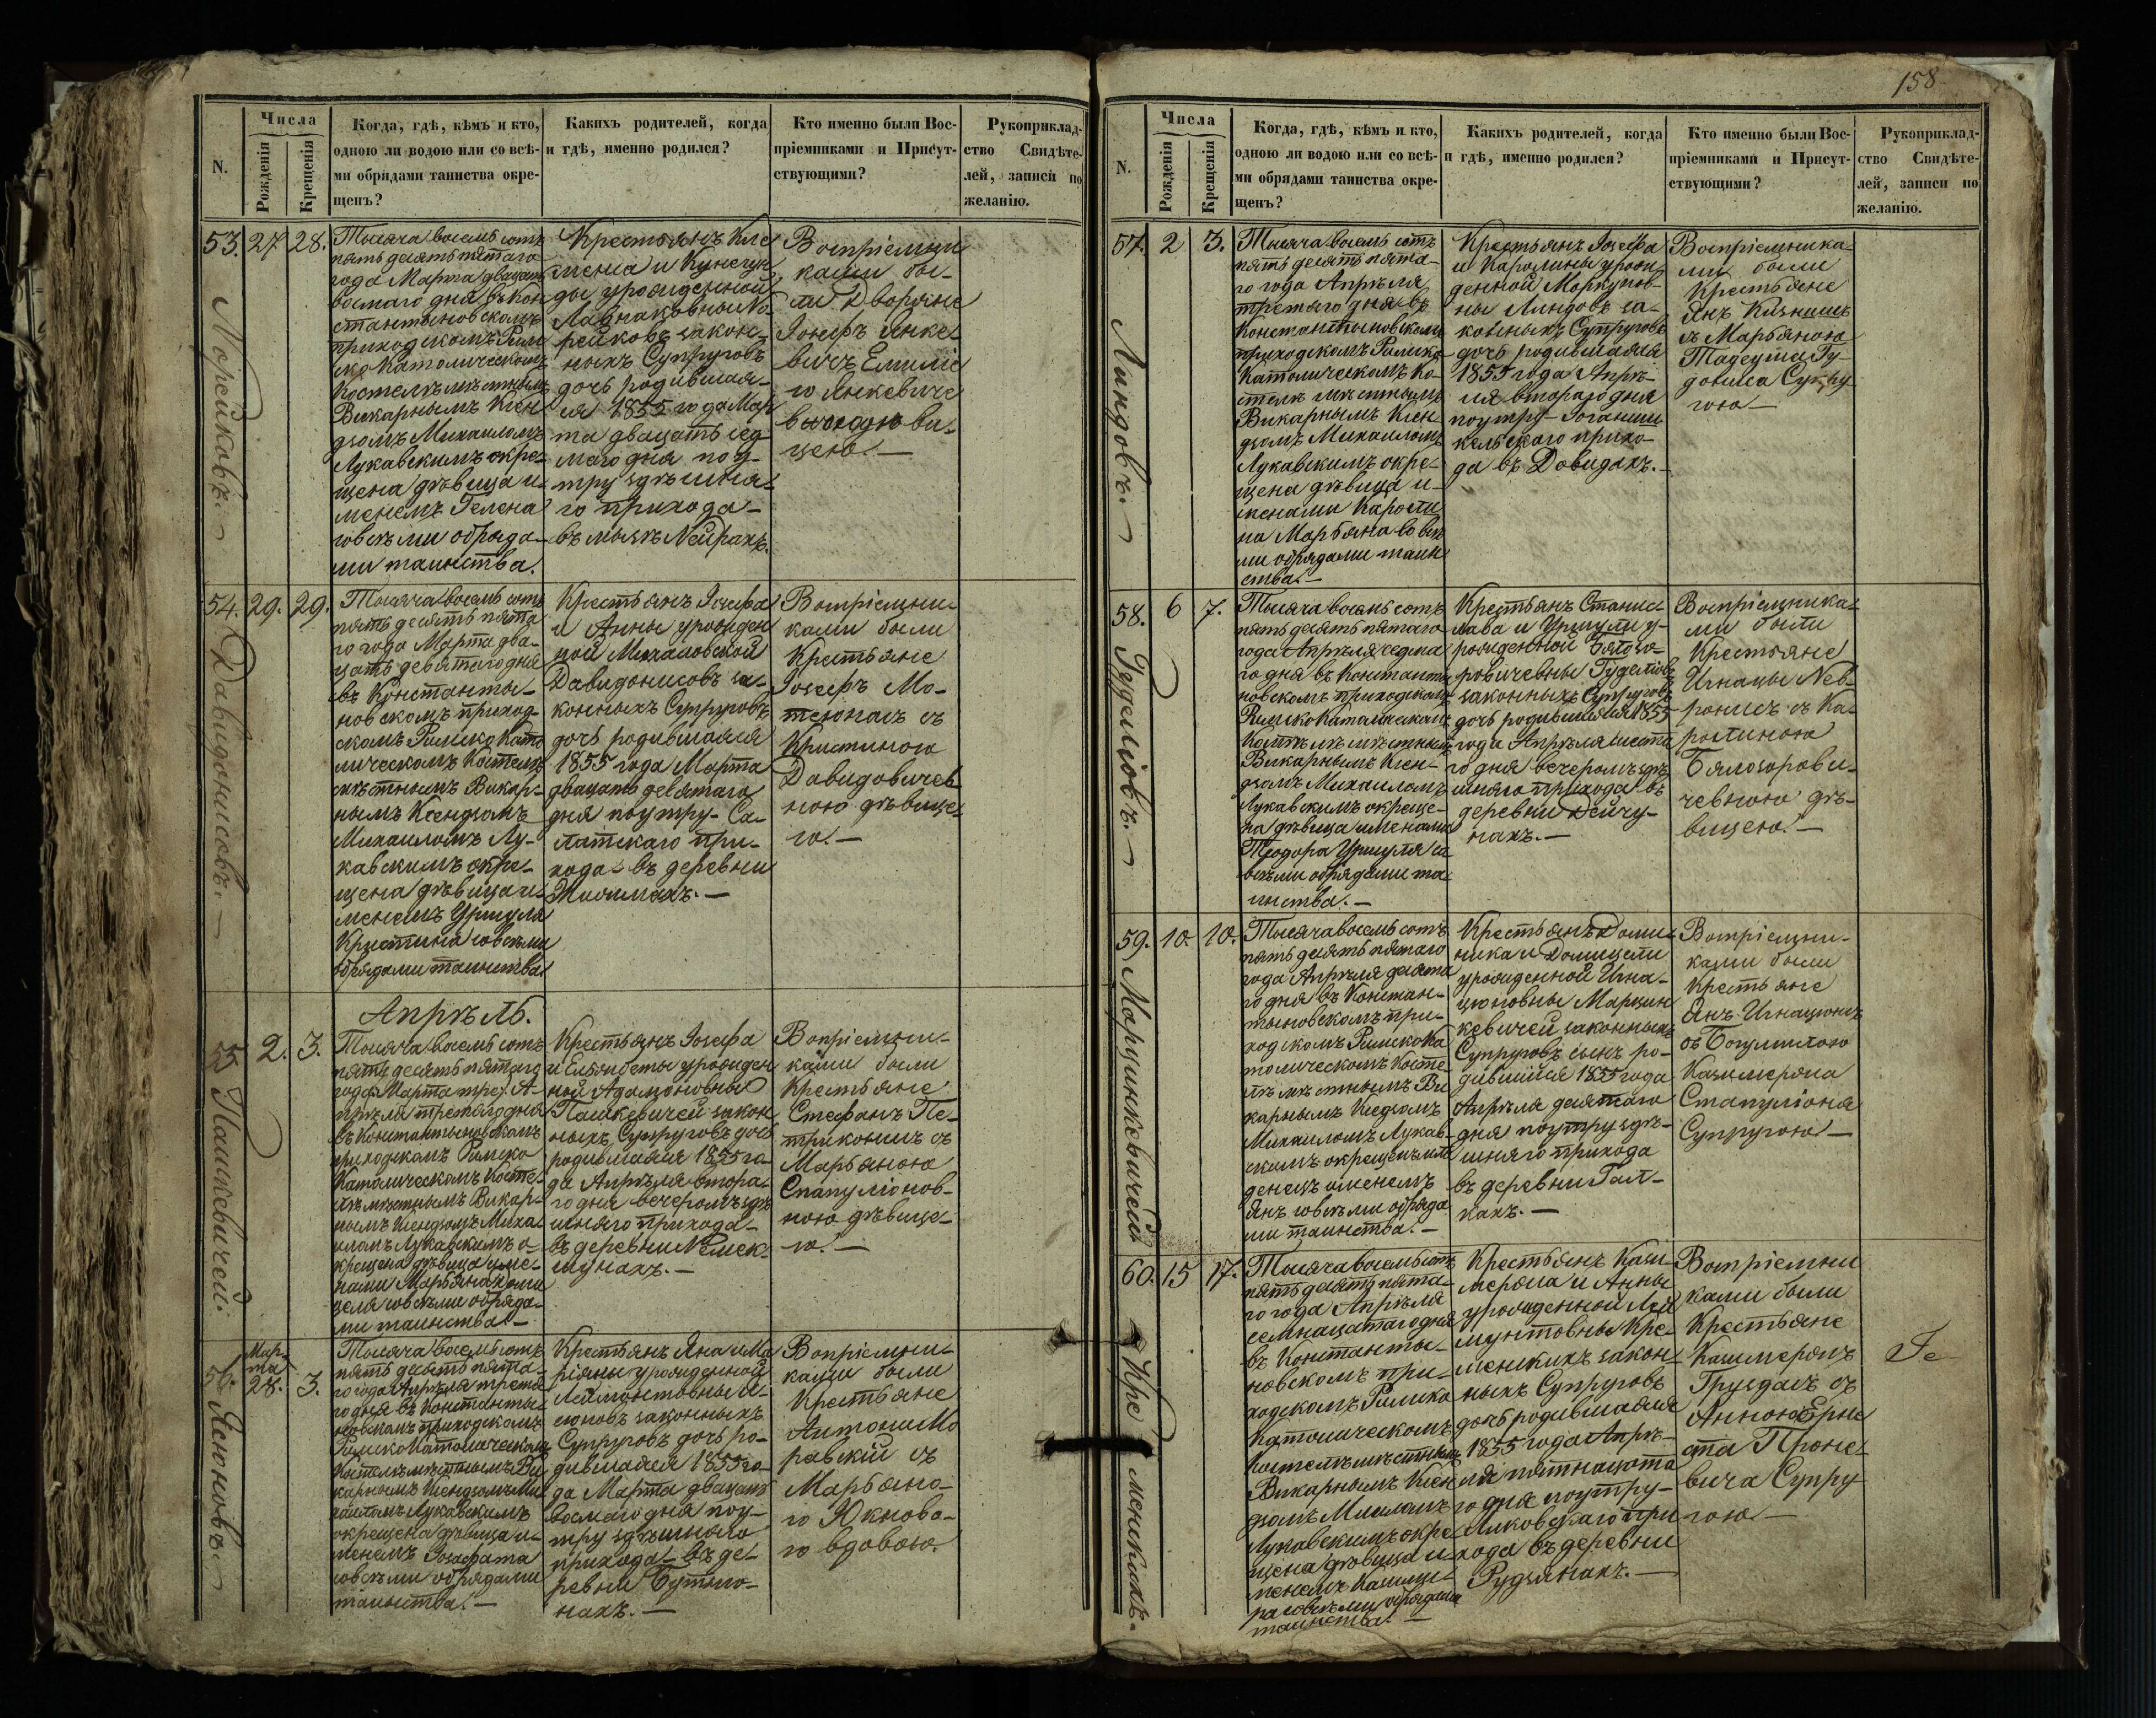 158
N.
Числа
Рожденія
Крещенія
Когда, гдѣ, кѣмъ и кто,
одною ли водою или со всѣ-
ми обрядами таинства окре-
щенъ?
Какихъ родителей, когда
и гдѣ, именно родился?
Кто именно были Вос-
пріемниками и Присут-
ствующими?
Рукоприклад-
ство Свидѣте-
лей, записи по
желанію.
53.
27
28.
Норейковъ.
Тысяча восемь сотъ
пять десятъ пятаго
года Марта двацать
восмаго дня въ Кон
стантыновскомъ
приходскомъ Рим
ско Католическомъ
Костелѣ мѣстнымъ
Викарнымъ Ксен
дзомъ Михаиломъ
Лукавскимъ окре-
щена дѣвица и-
менемъ Гелена
совсѣми обряда-
ми таинства.
Крестьянъ Кле
менса и Кунегун
ды урожденной
Но
рейковъ закон-
ныхъ Супруговъ
дочь родившая-
ся 1855 года Мар
та двацать сед
маго дня поу-
тру здѣшня-
го прихода-
въ мызѣ Нейрахъ.
Воспріемни
ками бы-
ли Дворяне
Іосифъ Янке-
вичъ Емилі
го Янкевиче
ви-
цею.-
54.
29.
29.
Давидонисовъ.-
Тысяча восемь сотъ
пять десятъ пята
го года Марта два-
цать девятаго дня
въ Константы-
новскомъ приход-
скомъ Римско Като
лическомъ Костелѣ
мѣстнымъ Викар-
нымъ Ксендзомъ
Михаиломъ Лу-
кавскимъ окре-
щена дѣвица и-
менемъ Уршуля
Кристина совсѣми
обрядами таинства
Крестьянъ Іосифа
и Анны урожден
ной Михаловской
Давидонисовъ за-
конныхъ Супруговъ
дочь родившаяся
1855 года Марта
двацать девятаго
дня поутру- Са-
латскаго при-
хода- въ деревни
Воспріемни-
ками были
Крестьяне
Іосифъ Мо-
теюнасъ съ
Кристиною
Давидовичев
ною дѣвице-
ю.-
Апрѣль.
55
2.
3.
Пашкевичей.
Тысяча восемь сотъ
пять десятъ пятаго
года Марта А-
прѣля третяго дня
въ Константыновскомъ
приходскомъ Римско
Католическомъ Косте-
лѣ мѣстнымъ Викар-
нымъ Ксендзомъ Миха
иломъ Лукавскимъ о-
крещена дѣвица име-
нами Марьяна Доми
целя совсѣми обряда-
ми таинства-
Крестьянъ Іосифа
и Ельжбеты урожден
ной Адамоновны
Пашкевичей закон
ныхъ Супруговъ дочь
родившаяся 1855 го-
да Апрѣля втора-
го дня вечеромъ здѣ
шняго прихода-
въ деревни Немек-
шунахъ.-
Воспріемни-
ками были
Крестьяне
Стефанъ Пе-
триконисъ съ
Марьяною
Скапуліонов-
ною дѣвице-
ю.-
56.
Мар-
та
28.
3.
Ясюновъ.
Тысяча восемь сотъ
пять десятъ пята-
го года Апрѣля третя
го дня въ Константы-
новскомъ приходскомъ
Римско Католическомъ
Костелѣ мѣстнымъ Ви
карнымъ Ксендзомъ Ми
хаиломъ Лукавскимъ
окрещена дѣвица и-
менемъ Іозефата
совсѣми обрядами
таинства.-
Крестьянъ Яна и Ма
ріяны урожденной
Леймонтовны Я-
сюновъ законныхъ
Супруговъ дочь ро-
дившаяся 1855 го-
да Марта двацать
восмаго дня поу-
тру здѣшняго
прихода- въ де-
ревни
нахъ.-
Воспріемни-
ками были
Крестьяне
Антони Мо
равскій съ
Марьяно-
ю Юкново-
ю вдовою.
N.
Числа
Рожденія
Крещенія
Когда, гдѣ, кѣмъ и кто,
одною ли водою или со всѣ-
ми обрядами таинства окре-
щенъ?
Какихъ родителей, когда
и гдѣ, именно родился?
Кто именно были Вос-
пріемниками и Присут-
ствующими?
Рукоприклад-
ство Свидѣте-
лей, записи по
желанію.
57.
2
3.
Линдовъ.
Тысяча восемь сотъ
пять десятъ пята-
го года Апрѣля
третяго дня въ
Константыновскомъ
приходскомъ Римско
Католическомъ Ко-
стелѣ мѣстнымъ
Викарнымъ Ксен-
дзомъ Михаиломъ
Лукавскимъ окре-
щена дѣвица и-
менами Кароли
на Марьяна со всѣ
ми обрядами таин
ства.-
Крестьянъ Іосифа
и Каролины урож-
денной Моркунов-
ны Линдовъ за-
конныхъ Супруговъ
дочь родившаяся
1855 года Апрѣ-
ля втораго дня
поутру- Іогании-
кельскаго прихо-
да въ Довидахъ.-
Воспріемника-
ми были
Крестьяне
Янъ Казнисъ
съ Марьяною
Тадеуша Гу-
дониса Супру
гою-
58.
6
7.
Гуделіовъ.-
Тысяча восемь сотъ
пять десятъ пятаго
года Апрѣля седма
го дня въ Константы
новскомъ приходскомъ
Римско Католическомъ
Костелѣ мѣстнымъ
Викарнымъ Ксен-
дзомъ Михаиломъ
Лукавскимъ окреще-
на дѣвица именами
Теодора Уршуля со
всѣми обрядами та-
инства.-
Крестьянъ Станис-
лава и Уршули у-
рожденной Бялозо-
ровичевны Гуделіовъ
законныхъ Супруговъ
дочь родившаяся 1855
года Апрѣля шеста
го дня вечеромъ здѣ
шняго прихода въ
деревни Дейчу-
нахъ.-
Воспріемника-
ми были
Крестьяне
Игнацы Нев-
ронисъ съ Ка-
ролиною
Бялозорови-
чевною дѣ-
вицею.-
59.
10.
10.
Марцинкевичей
Тысяча восемь сотъ
пять десятъ пятаго
года Апрѣля десята
го дня въ Констан-
тыновскомъ при-
ходскомъ Римско Ка
толическомъ Косте-
лѣ мѣстнымъ Ви
карнымъ Ксендзомъ
Михаиломъ Лукав-
скимъ окрещенъ мла
денецъ именемъ
Янъ совсѣми обряда
ми таинства.-
Крестьянъ Доми-
ника и Домицели
урожденной Игна-
цюновны Марцин
кевичей законныхъ
Супруговъ сынъ ро-
дившійся 1855 года
Апрѣля десятаго
дня поутру здѣ-
шняго прихода
въ деревни Гал-
кахъ.-
Воспріемни-
ками были
Крестьяне
Янъ Игнационъ
съ Богумилою
Казимержа
Скапуліоня
Супругою-
60.
15
17.
Кременскихъ.
Тысяча восемь сотъ
пять десятъ пята-
го года Апрѣля
семнацатаго дня
въ Константы-
новскомъ при-
ходскомъ Римско
Католическомъ
Костелѣ мѣстнымъ
Викарнымъ Ксен
дзомъ Михаиломъ
Лукавскимъ окре-
щена дѣвица и-
менемъ Казиме-
ра совсѣми обрядами
таинства.-
Крестьянъ Кази-
мержа и Анны
урожденной Лей
мунтовны Кре-
менскихъ закон-
ныхъ Супруговъ
дочь родившаяся
1855 года Апрѣ-
ля пятнацата
го дня поутру-
Ликовскаго при
хода въ деревни
Рудзянахъ.-
Воспріемни
ками были
Крестьяне
Казимержъ
Груздасъ съ
Анною Ерне
ста Проне-
вича Супру
гою-